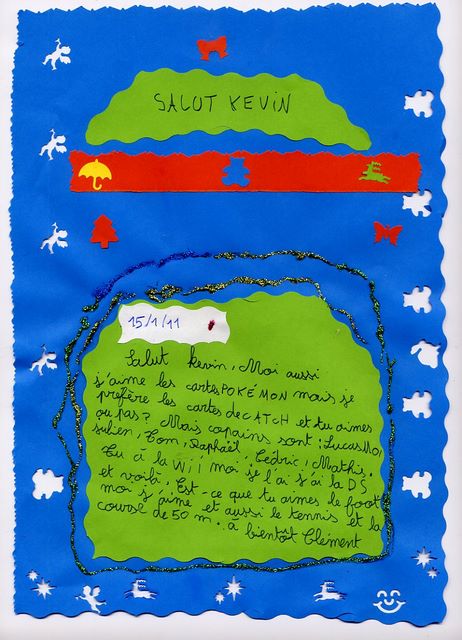 SALUT KEVIN
15/1/11
Salut kevin, Moi aussi
j'aime les cartes POKÉMON mais je
préfère les cartes de CATCH et tu aimes
ou pas? Mais copains sont : Lucas Mo,
Julien, Tom, Raphaël, Cédric, Mathis.
Tu à la Wii moi je l'ai j'ai la DS
et voilà, Est-ce que tu aimes le foot
moi j'aime et aussi le tennis et la
course de 50 m. à bientôt Clément